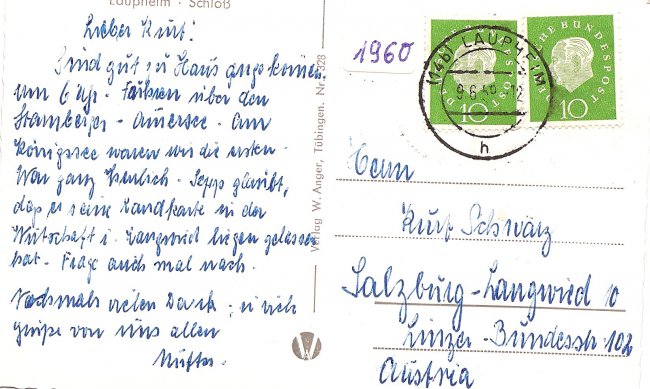 Laupheim · Schloß
Lieber Kurt!
Sind gut zu Haus angekommen
um 6 Uhr. Fuhren über den
Starnberger - Amersee. Am
Königssee waren wir die ersten.
War ganz herrlich. Sepp glaubt,
daß er seine Landkarte in der
Wirtschaft i. Langwied liegen gelassen
hat. Frage auch mal nach.
Nochmals vielen Dank u. viele
Grüße von uns allen
Mutter.
Verlag W. Anger, Tübingen. Nr. 328
W
1960
(14b) LAUPHEIM
9.6.
h
DEUTSCHE BUNDESPOST
10
DEUTSCHE BUNDESPOST
10
Herrn
Kurt Schwarz
Salzburg-Langwied
Linzer-Bundesstr. 102
Austria